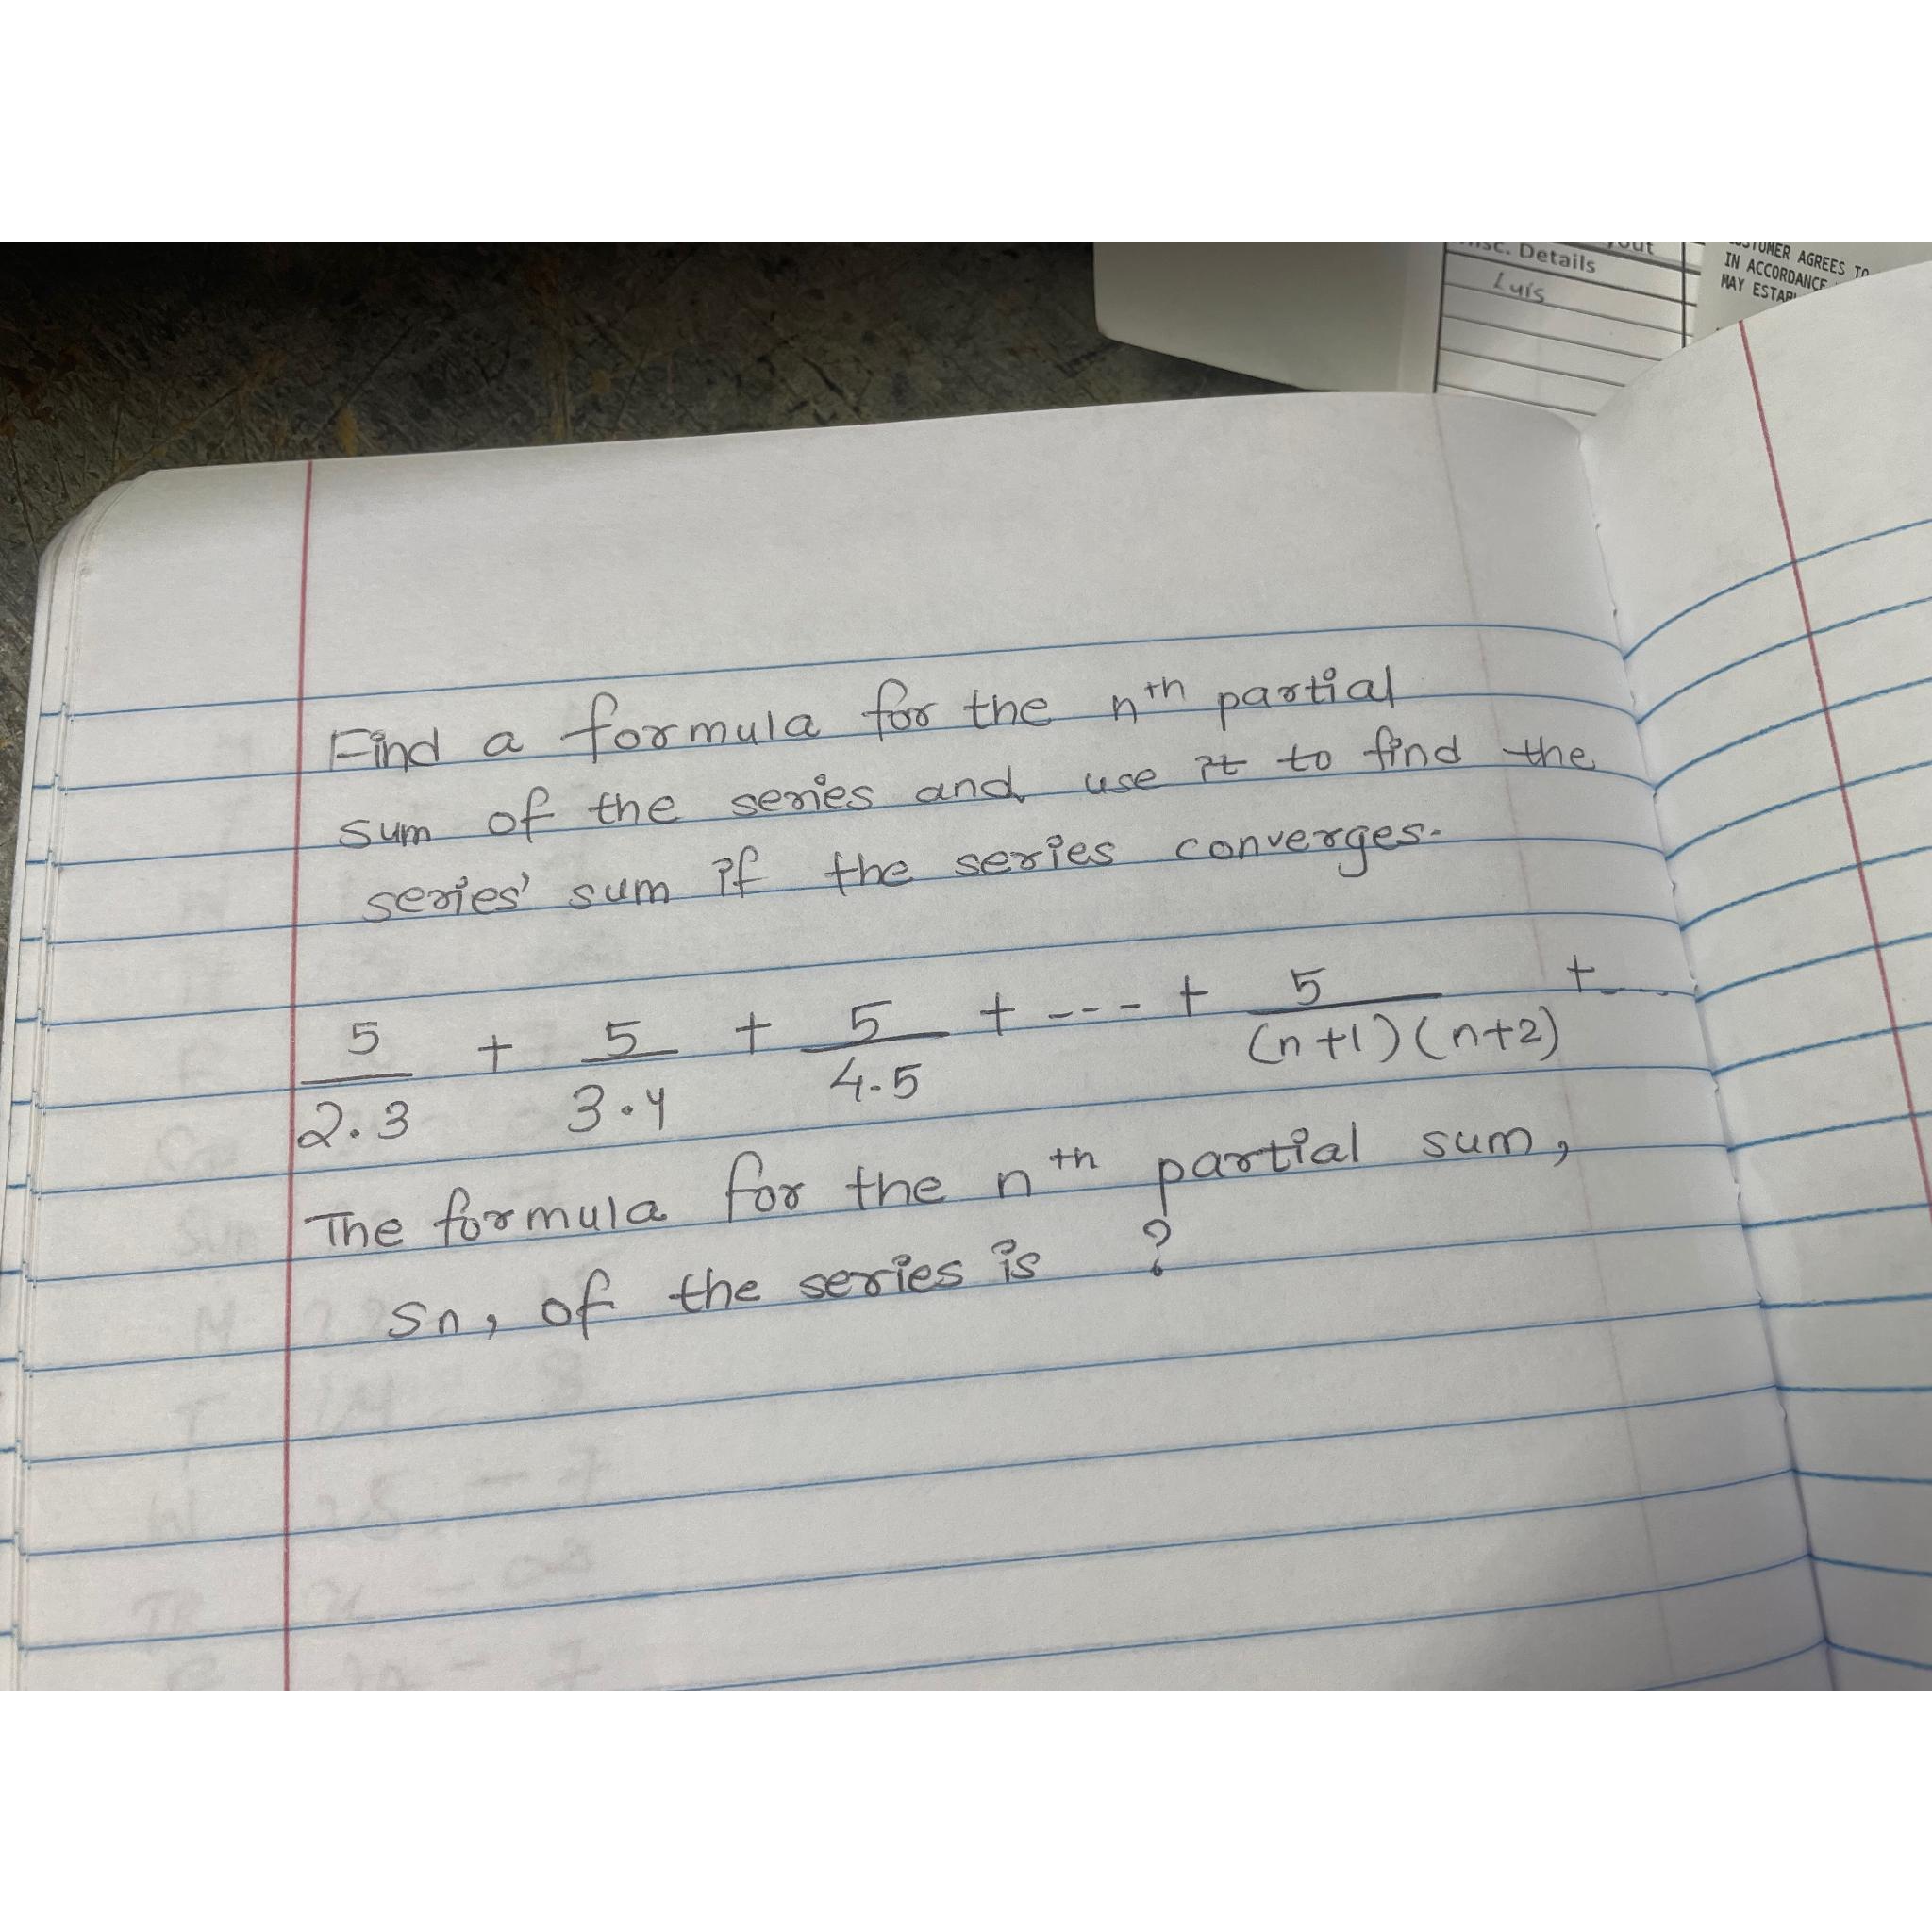 sc. Details
Luis
CUSTOMER AGREES TO
IN ACCORDANCE
MAY
Find a formula for the nth partial
sum of the series and use it to find the
series' sum if the series converges.
5/2.3 + 5/3.4 + 5/4.5 + --- + 5/(n+1)(n+2) + ----
The formula for the nth partial sum,
Sn, of the series is ?